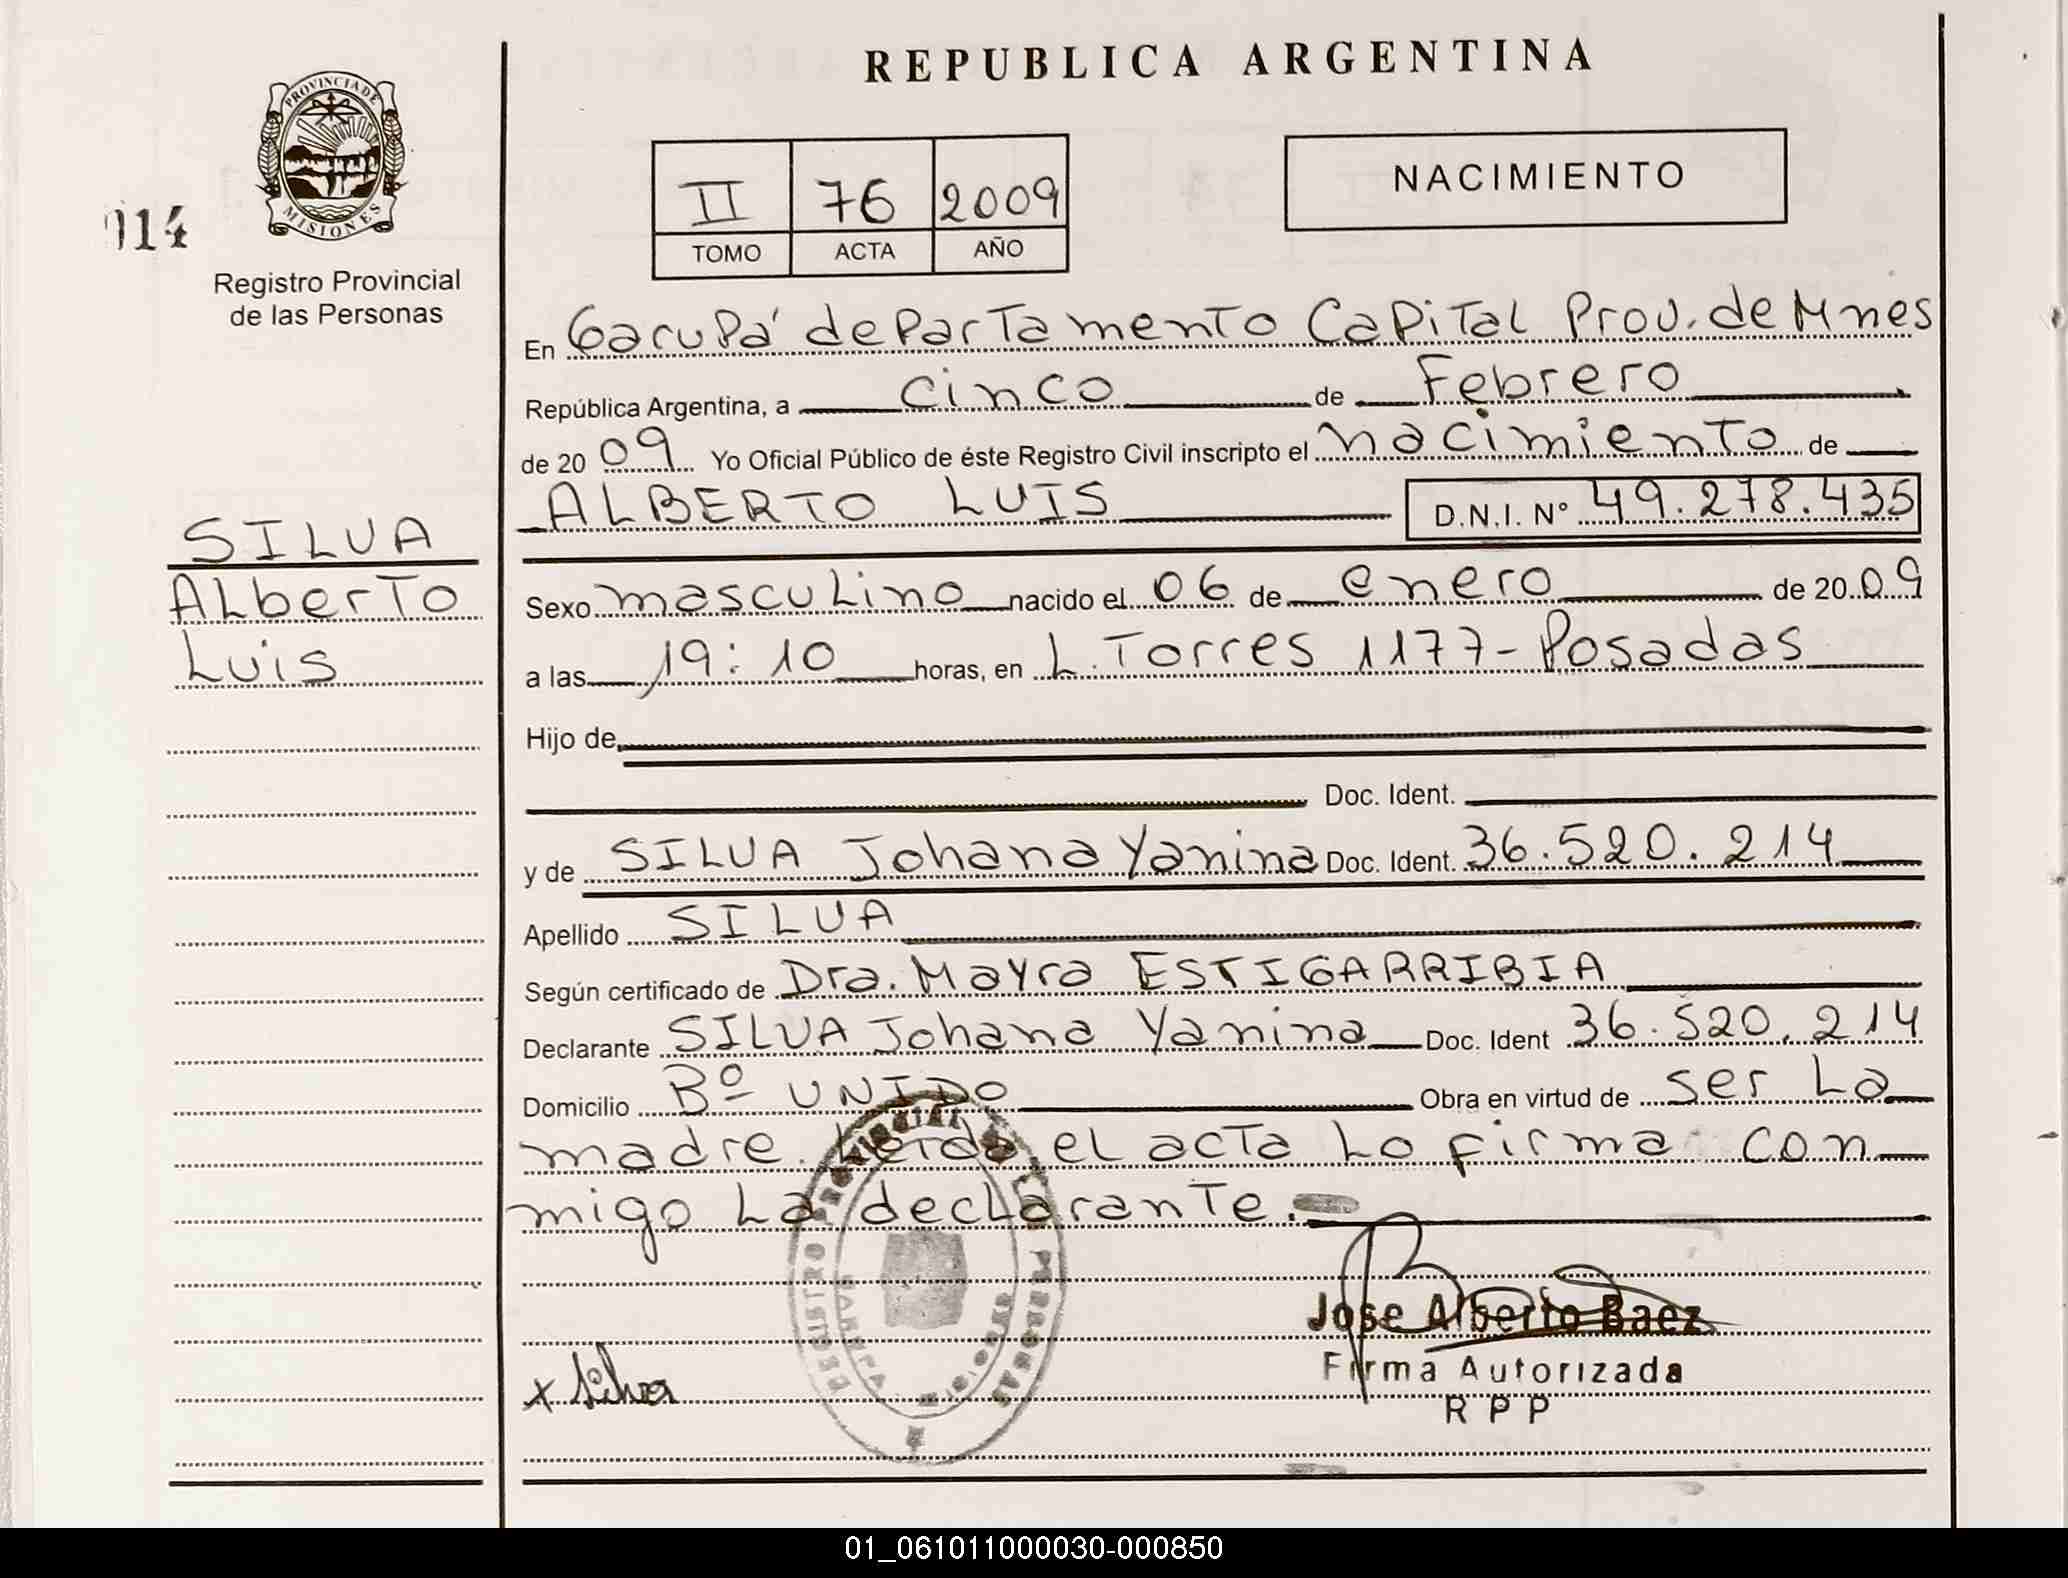 REPUBLICA ARGENTINA
PROVINCIA DE
MISIONES
014
Registro Provincial
de las Personas
II 76 2009
TOMO ACTA AÑO
NACIMIENTO
SILVA
Alberto
Luis
En Garupá departamento Capital Prov. de Mnes
República Argentina, a cinco de Febrero
de 2009 Yo Oficial Público de éste Registro Civil inscripto el nacimiento de
ALBERTO LUIS D.N.I. Nº 49.278.435
Sexo masculino nacido el 06 de enero de 2009
a las 19:10 horas, en L. Torres 1177-Posadas
Hijo de
Doc. Ident.
y de SILVA Johana Yanina Doc. Ident. 36.520.214
Apellido SILVA
Según certificado de Dra. Mayra ESTIGARRIBIA
Declarante SILVA Johana Yanina Doc. Ident 36.520.214
Domicilio Bº UNIDO Obra en virtud de ser La
madre. Leida el acta Lo firma con
migo La declarante.
REGISTRO PROVINCIAL PERSONAS
Jose Alberto Baez
Firma Autorizada
R P P
x Silva
01_061011000030-000850